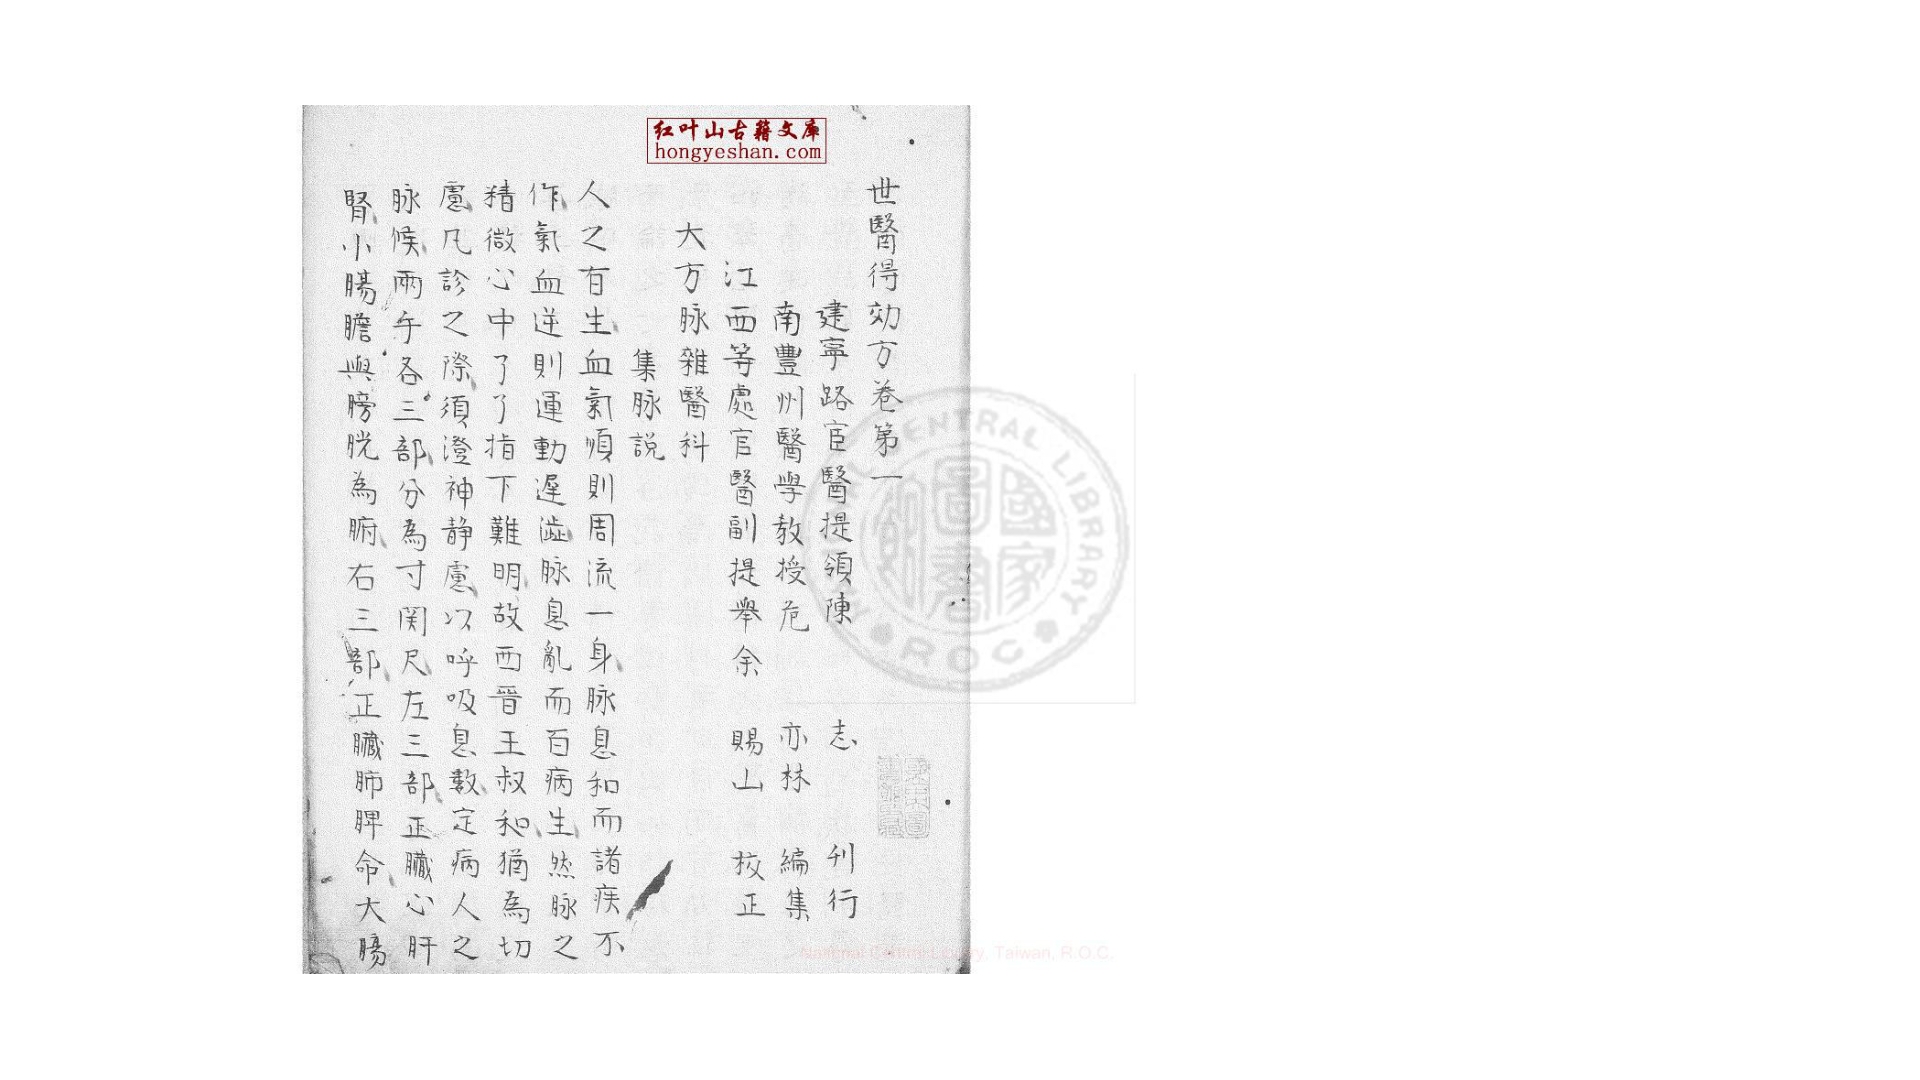 红叶山古籍文库
hongyeshan.com
世醫得効方卷第一
建寧路官醫提領陳 志 刊行
南豐州醫學教授危 亦林 編集
江西等處官醫副提舉余 賜山 校正
大方脉雜醫科
集脉説
人之有生血氣順則周流一身脉息和而諸疾不
作氣血逆則運動遲澁脉息亂而百病生然脉之
精微心中了了指下難明故西晉王叔和猶為切
慮凡診之際須澄神静慮以呼吸息數定病人之
脉候兩手各三部分為寸関尺左三部正臓心肝
腎小腸膽與膀胱為腑右三部正臓肺脾命大腸
CENTRAL LIBRARY
R O C
國家圖書館
National Central Library, Taiwan, R.O.C.